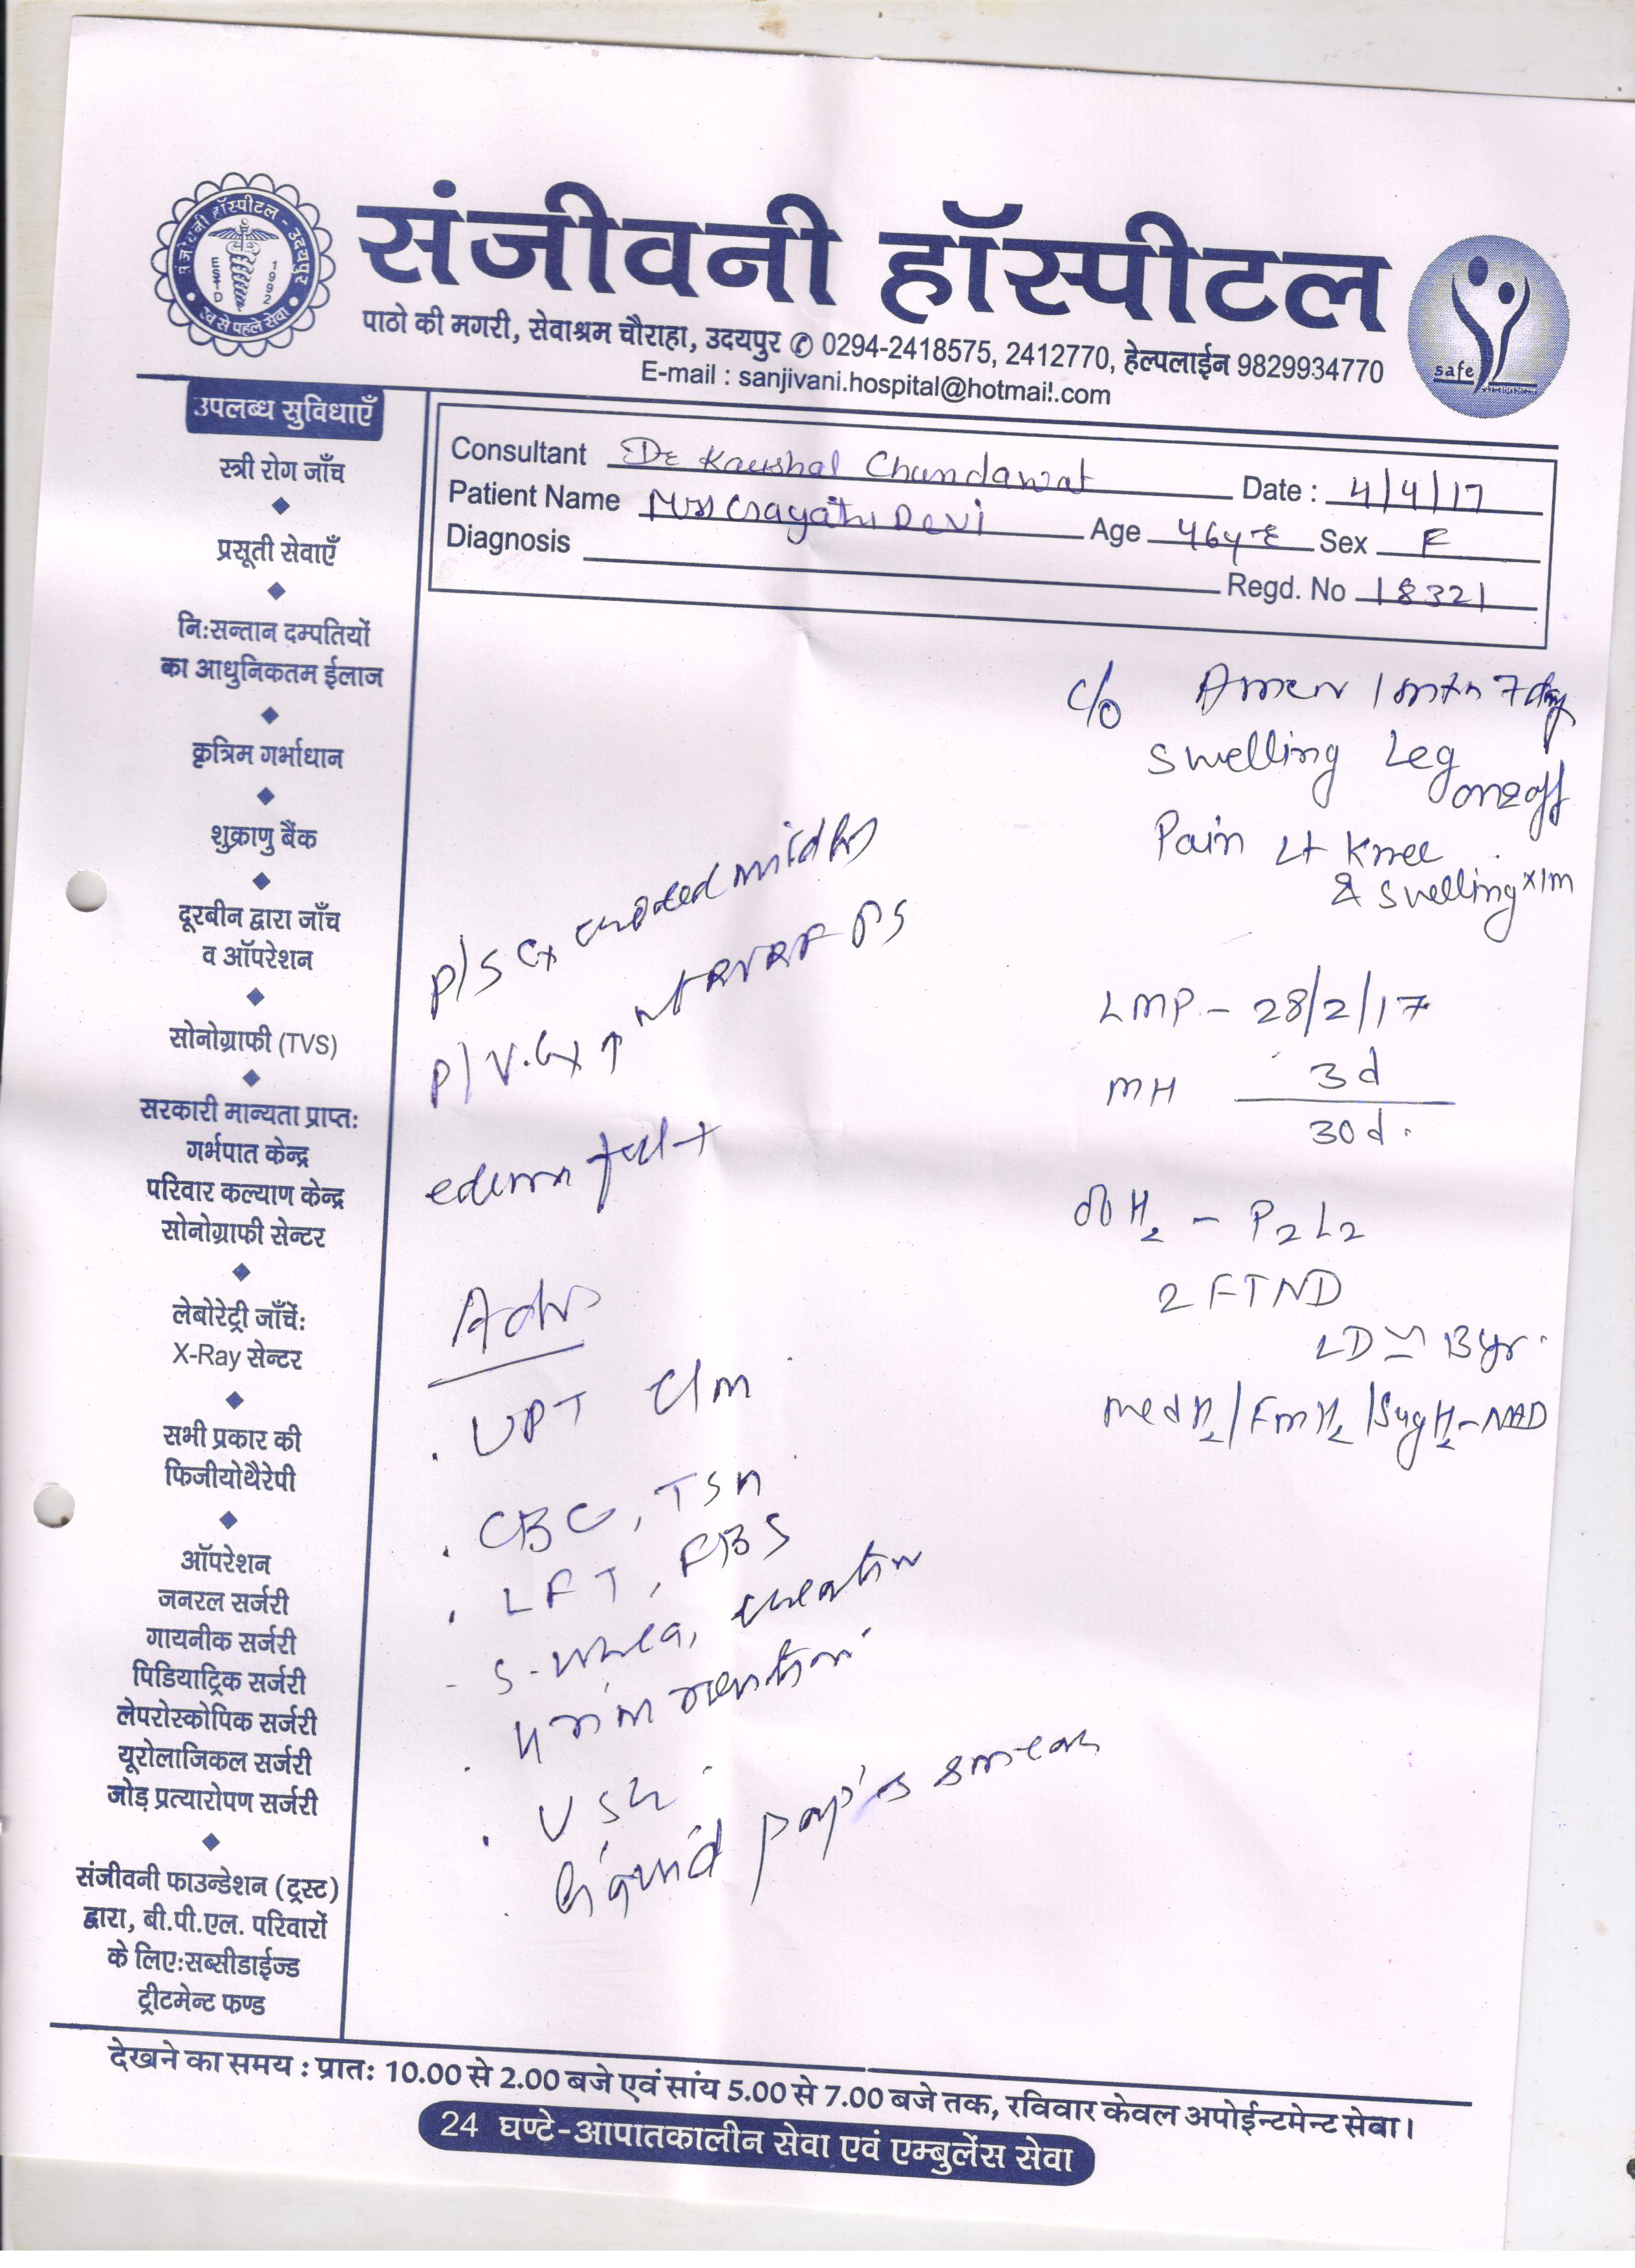 संजीवनी हॉस्पीटल - उदयपुर
ESTD 1992
सेवा
संजीवनी हॉस्पीटल
पाठो की मगरी, सेवाश्रम चौराहा, उदयपुर ✆ 0294-2418575, 2412770, हेल्पलाईन 9829934770
E-mail : sanjivani.hospital@hotmail.com
safe
उपलब्ध सुविधाएँ
स्त्री रोग जाँच
प्रसूती सेवाएँ
नि:सन्तान दम्पतियों
का आधुनिकतम ईलाज
कृत्रिम गर्भाधान
शुक्राणु बैंक
दूरबीन द्वारा जाँच
व ऑपरेशन
सोनोग्राफी (TVS)
सरकारी मान्यता प्राप्त:
गर्भपात केन्द्र
परिवार कल्याण केन्द्र
सोनोग्राफी सेन्टर
लेबोरेट्री जाँचें:
X-Ray सेन्टर
सभी प्रकार की
फिजीयोथैरेपी
ऑपरेशन
जनरल सर्जरी
गायनीक सर्जरी
पिडियाट्रिक सर्जरी
लेपरोस्कोपिक सर्जरी
यूरोलाजिकल सर्जरी
जोड़ प्रत्यारोपण सर्जरी
संजीवनी फाउन्डेशन (ट्रस्ट)
द्वारा, बी.पी.एल. परिवारों
के लिए:सब्सीडाईज्ड
ट्रीटमेन्ट फण्ड
Consultant Dr Kaushal Chundawat Date : 4/4/17
Patient Name Mrs Gayatri Devi Age 46yr Sex F
Diagnosis
Regd. No 18321
c/o Amen 1 mth 7 day
Swelling Leg
on & off
Pain Lt Knee
& swelling x 1m
LMP - 28/2/17
MH 3d
30d.
P2L2
2 FTND
LD 13yr.
P/S Cx eroded
P/V. Cx ↑ RVRF
edema feet +
Adv
. UPT
. CBC, TSH
. LFT, FBS
- S-urea, creatin
. urin routin
. USG
. Liquid pap's smear
देखने का समय : प्रात: 10.00 से 2.00 बजे एवं सांय 5.00 से 7.00 बजे तक, रविवार केवल अपोईन्टमेन्ट सेवा।
24 घण्टे-आपातकालीन सेवा एवं एम्बुलेंस सेवा